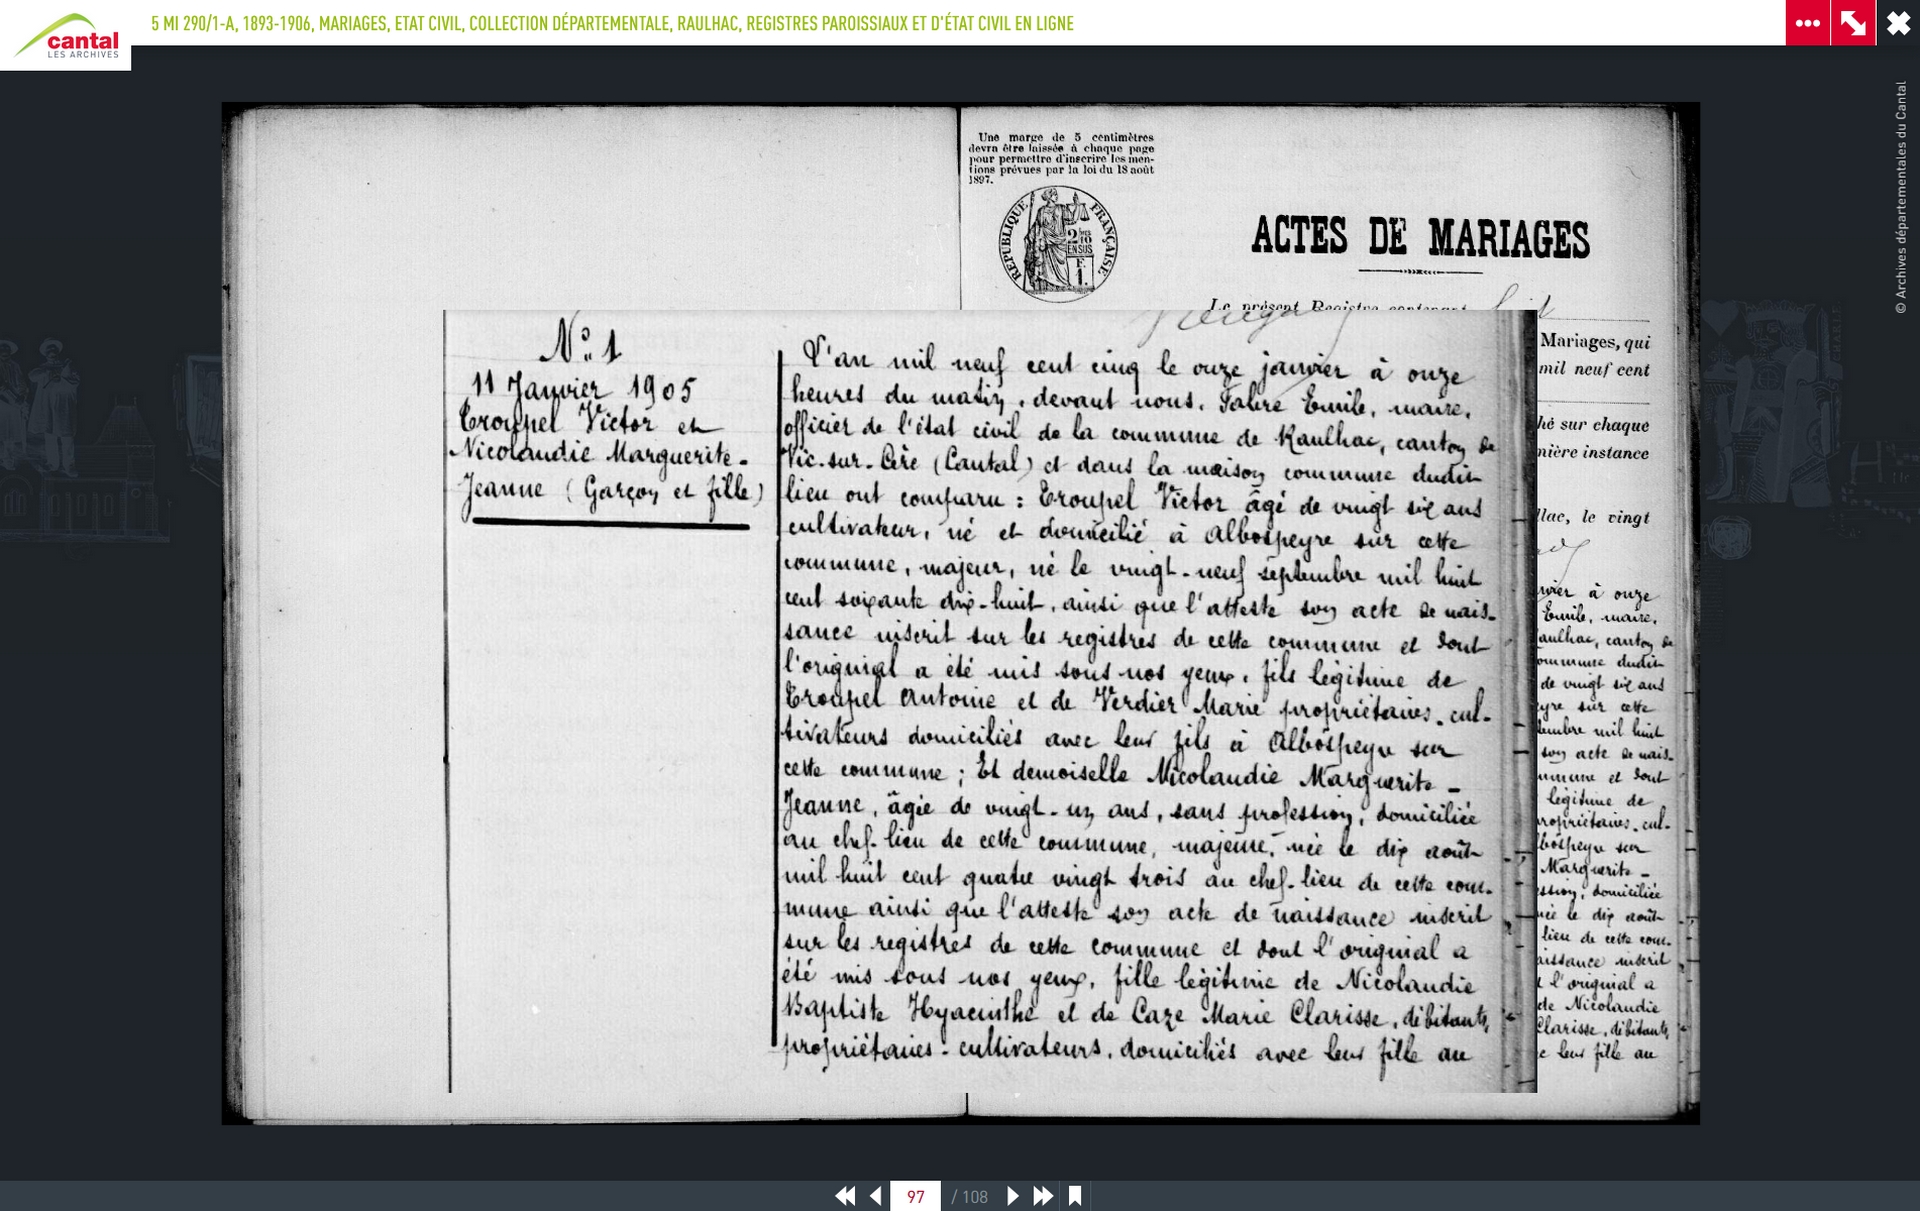 5 MI 290/1-A, 1893-1906, MARIAGES, ETAT CIVIL, COLLECTION DÉPARTEMENTALE, RAULHAC, REGISTRES PAROISSIAUX ET D'ÉTAT CIVIL EN LIGNE
cantal
LES ARCHIVES
© Archives départementales du Cantal
Une marge de 5 centimètres
devra être laissée à chaque page
pour permettre d'inscrire les men-
tions prévues par la loi du 18 août
1897.
RÉPUBLIQUE FRANÇAISE
2/10
EN SUS
F.
1.
ACTES DE MARIAGES
Le présent Registre contenant
Mariages, qui
mil neuf cent
hé sur chaque
nière instance
llac, le vingt
N° 1
11 Janvier 1905
Troupel Victor et
Nicolaudie Marguerite-
Jeanne (Garçon et fille)
L'an mil neuf cent cinq le onze janvier à onze
heures du matin, devant nous, Fabre Emile, maire,
officier de l'état civil de la commune de Raulhac, canton de
Vic-sur-Cère (Cantal) et dans la maison commune dudit
lieu ont comparu : Troupel Victor âgé de vingt six ans
cultivateur, né et domicilié à Albospeyre sur cette
commune, majeur, né le vingt-neuf septembre mil huit
cent soixante dix-huit, ainsi que l'atteste son acte de nais-
sance inscrit sur les registres de cette commune et dont
l'original a été mis sous nos yeux, fils légitime de
Troupel Antoine et de Verdier Marie propriétaires-cul-
tivateurs domiciliés avec leur fils à Albospeyre sur
cette commune ; Et demoiselle Nicolaudie Marguerite-
Jeanne, âgée de vingt-un ans, sans profession, domiciliée
au chef-lieu de cette commune, majeure, née le dix août
mil huit cent quatre vingt trois au chef-lieu de cette com-
mune ainsi que l'atteste son acte de naissance inscrit
sur les registres de cette commune et dont l'original a
été mis sous nos yeux, fille légitime de Nicolaudie
Baptiste Hyacinthe et de Caze Marie Clarisse, débitants,
propriétaires-cultivateurs, domiciliés avec leur fille au
nvier à onze
Emile, maire,
aulhac, canton de
ommune dudit
de vingt six ans
eyre sur cette
tembre mil huit
son acte de nais-
mmune et dont
légitime de
propriétaires-cul-
bospeyre sur
Marguerite-
ssion, domiciliée
née le dix août
lieu de cette com-
aissance inscrit
t l'original a
de Nicolaudie
Clarisse, débitants,
c leur fille au
97 / 108